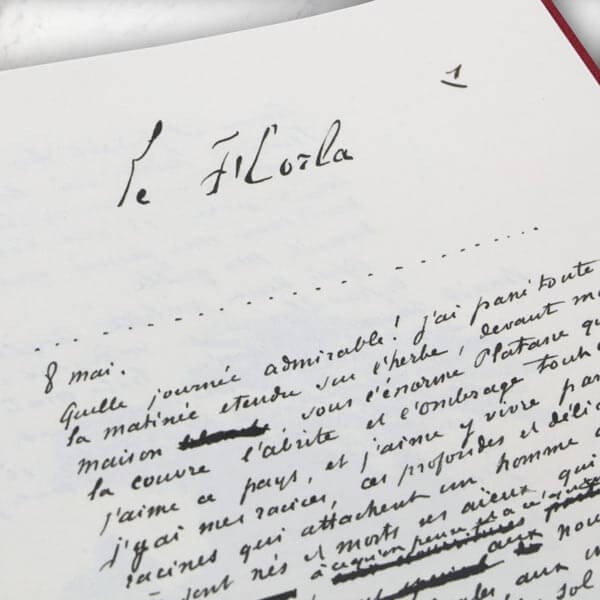 1
Le Horla
8 mai.
Quelle journée admirable! j'ai passé toute
la matinée étendu sur l'herbe, devant ma
maison, sous l'énorme Platane qu
la couvre l'abrite et l'ombrage tout
j'aime ce pays, et j'aime y vivre par
j'y ai mes racines, ces profondes et déli
racines qui attachent un homme à
nés et morts ses aïeux, qui
à ce qu'on pense et à ce qu'on
aux nou
aux in
sol